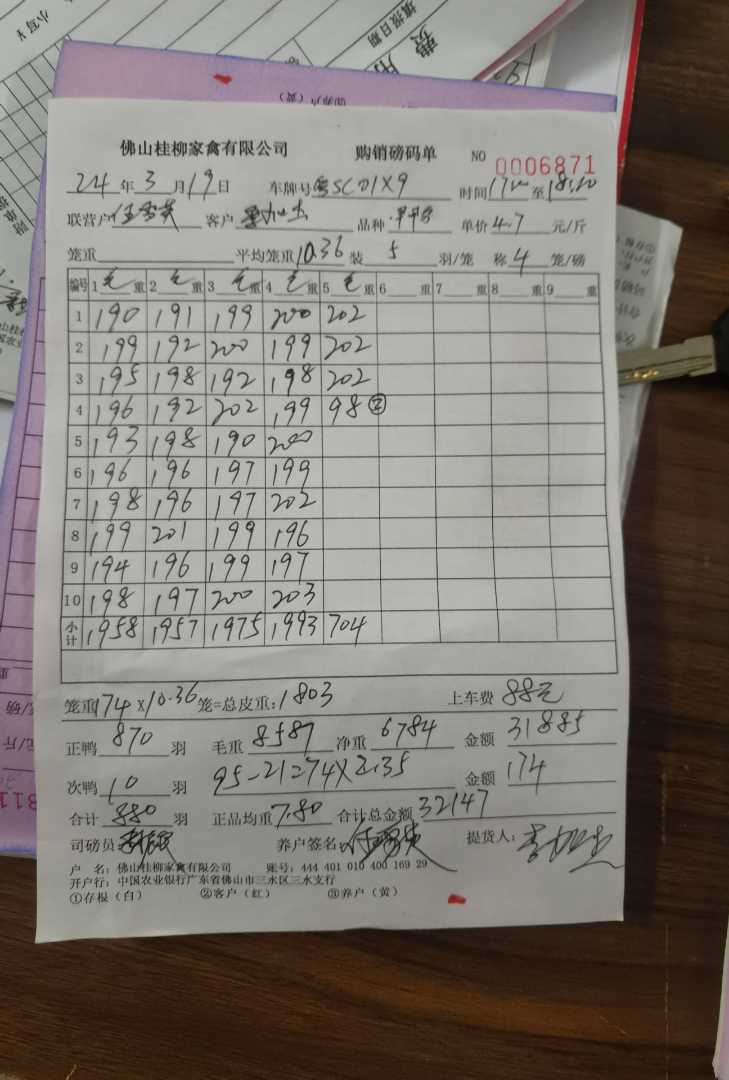 小写¥
填报日期
费用
佛山桂柳家禽有限公司 购销磅码单 NO 0006871
24年3月19日 车牌号粤SC01X9 时间17:00至18:20
联营户 客户 品种 单价4.7元/斤
笼重 平均笼重10.36装5羽/笼 称4笼/磅
编号 1毛重 2毛重 3毛重 4毛重 5毛重 6重 7重 8重 9重
1 190 191 199 200 202
2 199 192 200 199 202
3 195 198 192 198 202
4 196 192 202 199 98②
5 193 198 190 200
6 196 196 197 199
7 198 196 197 202
8 199 201 199 196
9 194 196 199 197
10 198 197 200 203
小计 1958 1957 1975 1993 704
笼重174×10.36笼=总皮重:1803 上车费88元
正鸭870羽 毛重8587净重6784 金额31885
次鸭10羽 95-21=74×2.35 金额174
合计880羽 正品均重7.80 合计总金额32147
司磅员 养户签名 提货人:
户 名:佛山桂柳家禽有限公司 账号:444 401 010 400 169 29
开户行:中国农业银行广东省佛山市三水区三水支行
①存根(白) ②客户(红) ③养户(黄)